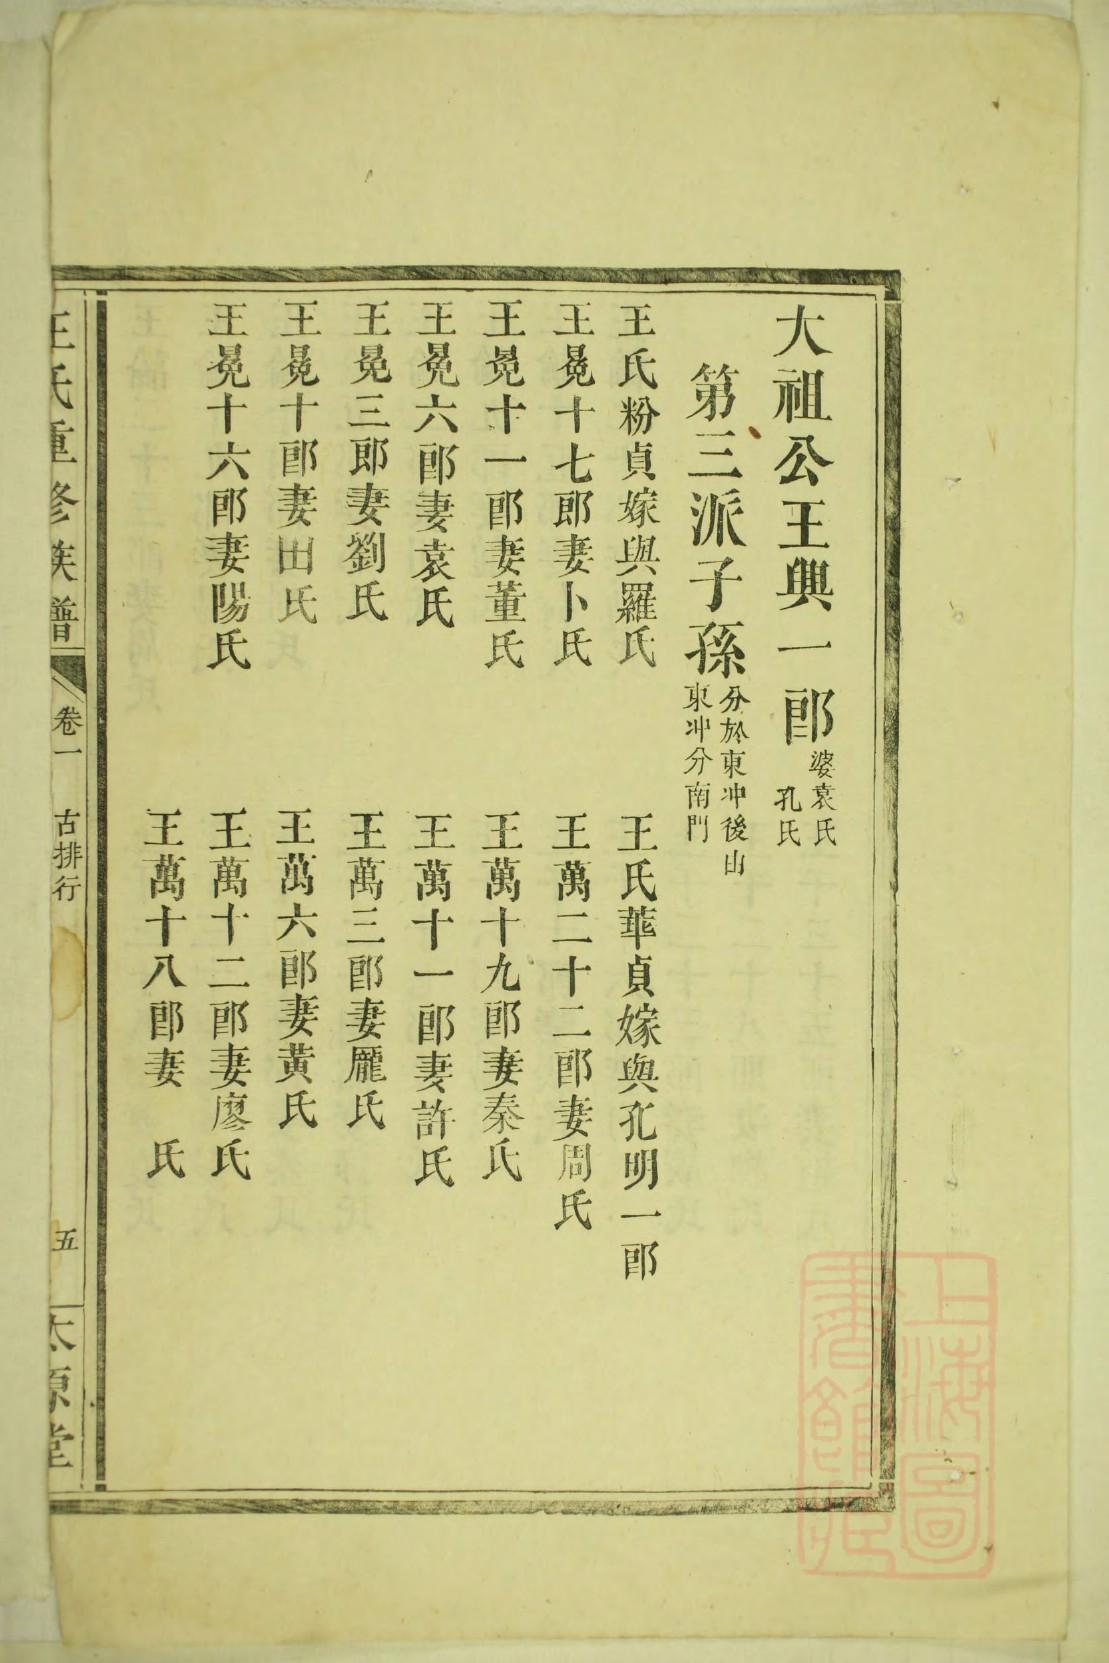 大祖公王興一郎婆袁氏孔氏
第三派子孫分於東冲後山東冲分南門
王氏粉貞嫁與羅氏
王氏華貞嫁與孔明一郎
王冕十七郎妻卜氏
王萬二十二郎妻周氏
王冕十一郎妻董氏
王萬十九郎妻秦氏
王冕六郎妻袁氏
王萬十一郎妻許氏
王冕三郎妻劉氏
王萬三郎妻龐氏
王冕十郎妻田氏
王萬六郎妻黃氏
王冕十六郎妻陽氏
王萬十二郎妻廖氏
王萬十八郎妻 氏
王氏重修族譜 卷一 古排行 五 太原堂
上海圖書館藏